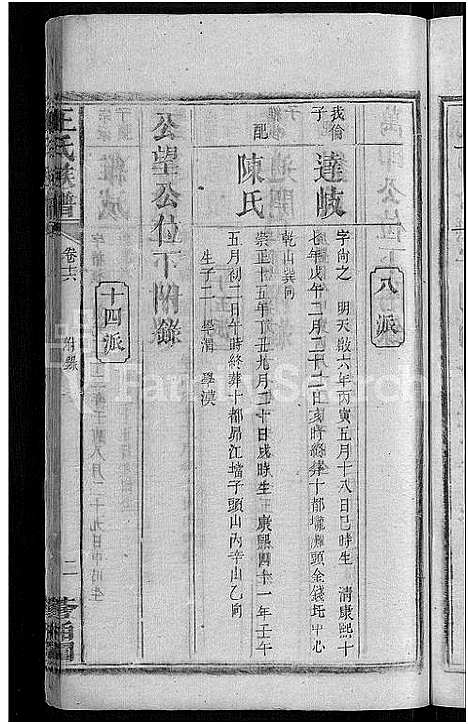 八派
我倫子
達岐
字尚之 明天啟六年丙寅五月十八日巳時生 清康熙十
七年戊午二月二十二日亥時終葬十都壠灘頭金錢坵中心
乾山巽向
配
陳氏
崇正十五年丁丑九月二十日戌時生 康熙四十一年壬午
五月初二日午時終葬十都昴江壋子頭山丙辛山乙向
生子二 學渭 學漢
公望公位下附錄
十四派
王氏族譜
卷十六
附錄
二
FamilySearch